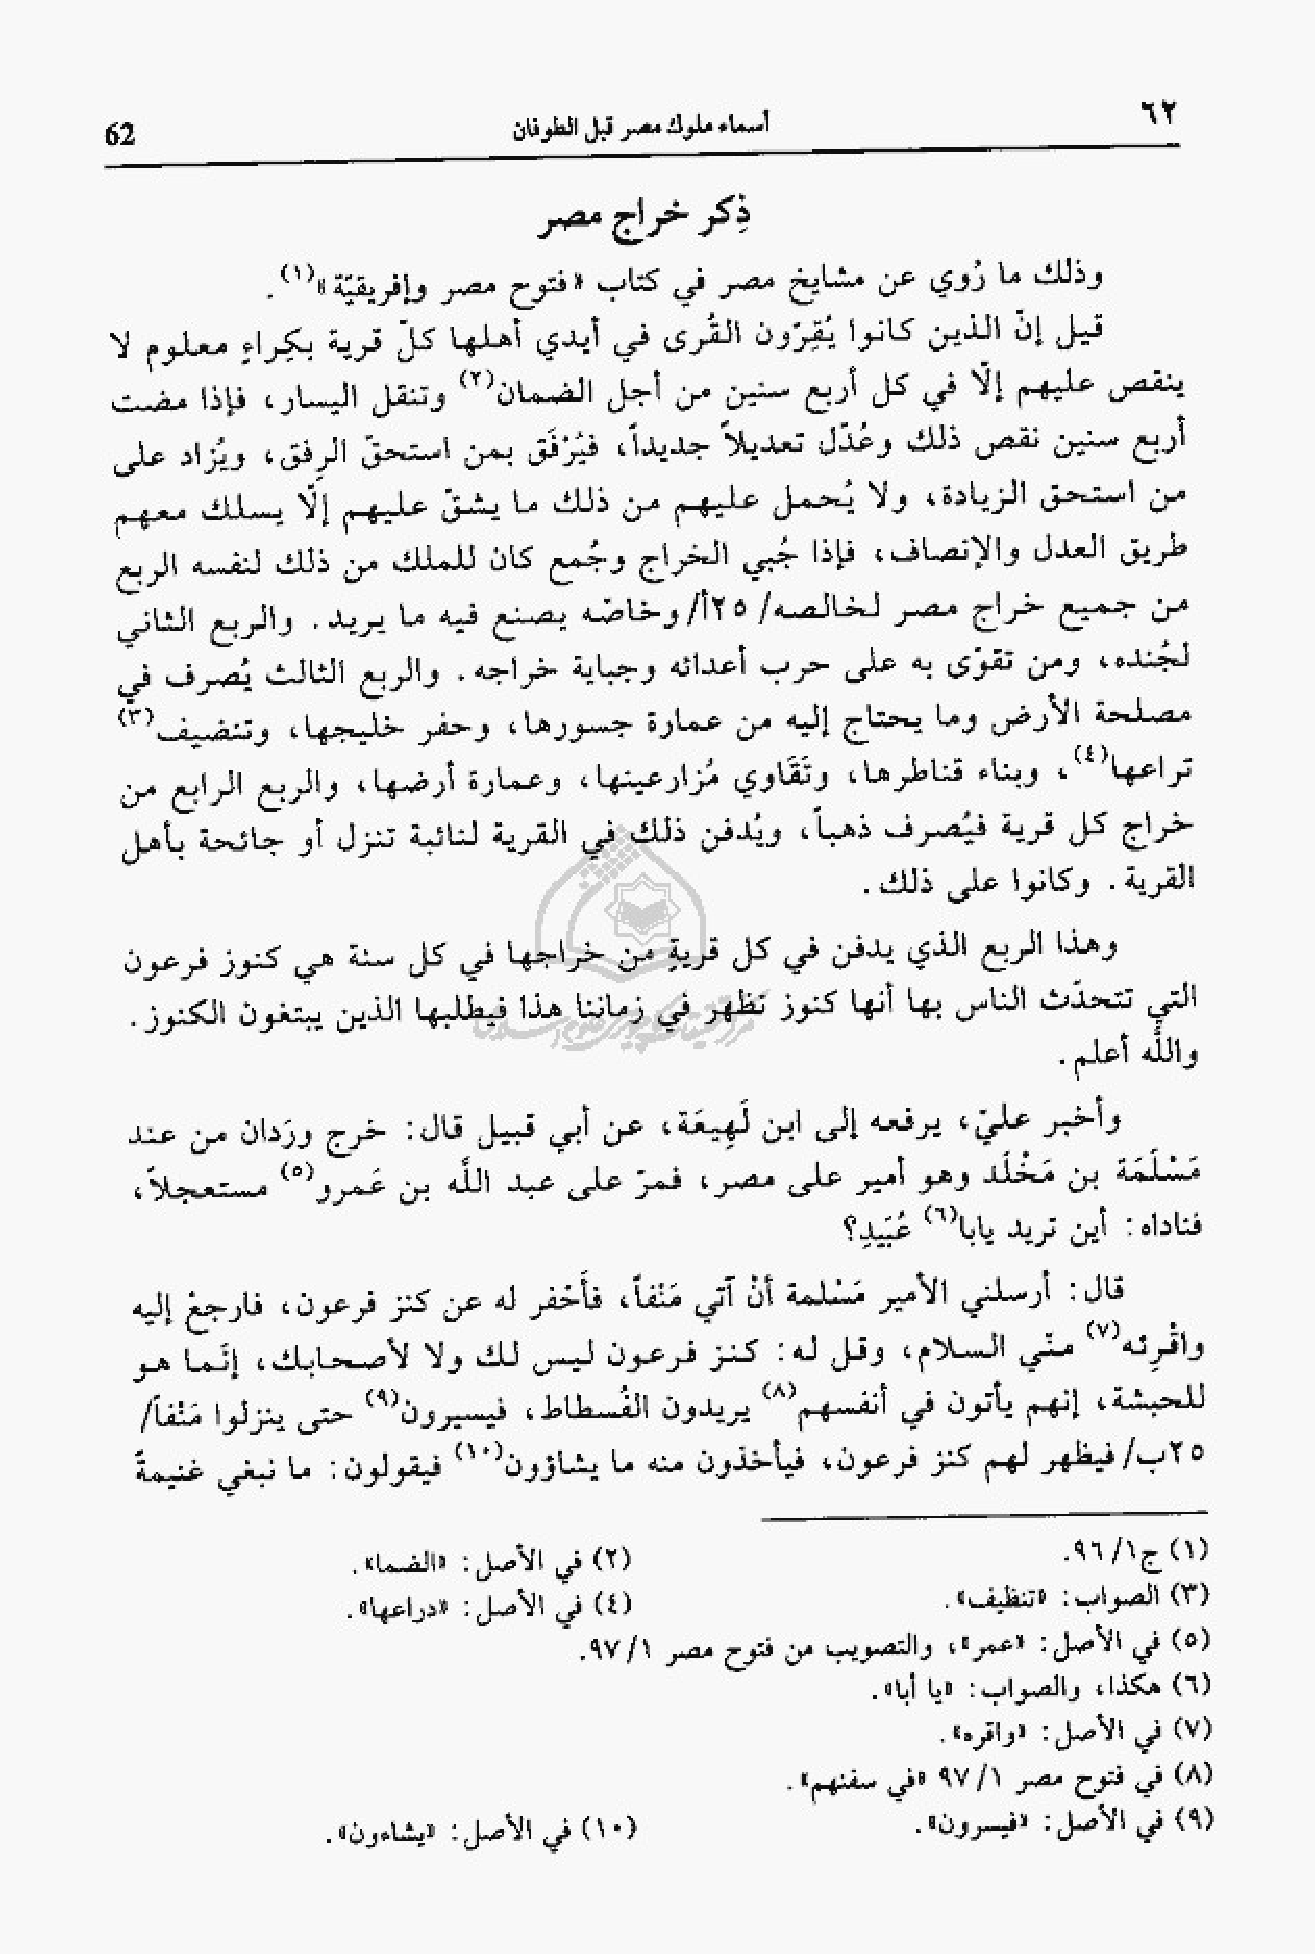 ٦٢
أسماء ملوك مصر قبل الطوفان
62
ذِكر خراج مصر
وذلك ما رُوي عن مشايخ مصر في كتاب «فتوح مصر وإفريقيّة»(١).
قيل إنّ الذين كانوا يُقِرّون القُرى في أيدي أهلها كلّ قرية بكِراءٍ معلوم لا
ينقص عليهم إلّا في كل أربع سنين من أجل الضمان(٢) وتنقل اليسار، فإذا مضت
أربع سنين نقص ذلك وعُدّل تعديلاً جديداً، فيُرْفَق بمن استحقّ الرِفق، ويُزاد على
من استحق الزيادة، ولا يُحمل عليهم من ذلك ما يشقّ عليهم إلّا يسلك معهم
طريق العدل والإنصاف، فإذا جُبي الخراج وجُمع كان للملك من ذلك لنفسه الربع
من جميع خراج مصر لخالصه/ ٢٥أ/ وخاصّه يصنع فيه ما يريد. والربع الثاني
لجُنده، ومن تقوّى به على حرب أعدائه وجباية خراجه. والربع الثالث يُصرف في
مصلحة الأرض وما يحتاج إليه من عمارة جسورها، وحفر خليجها، وتنضيف(٣)
تراعها(٤)، وبناء قناطرها، وتَقَاوي مُزارعينها، وعمارة أرضها، والربع الرابع من
خراج كل قرية فيُصرف ذهباً، ويُدفن ذلك في القرية لنائبة تنزل أو جائحة بأهل
القرية. وكانوا على ذلك.
وهذا الربع الذي يدفن في كل قريةٍ من خراجها في كل سنة هي كنوز فرعون
التي تتحدّث الناس بها أنها كنوز تظهر في زماننا هذا فيطلبها الذين يبتغون الكنوز.
واللَّه أعلم.
وأخبر عليّ، يرفعه إلى ابن لَهِيعَة، عن أبي قبيل قال: خرج ورَدان من عند
مَسْلَمَة بن مَخْلَد وهو أمير على مصر، فمرّ على عبد اللَّه بن عَمرو(٥) مستعجلاً،
فناداه: أين تريد يابا(٦) عُبَيدِ؟
قال: أرسلني الأمير مَسْلمة أنْ آتي مَنْفاً، فأَحْفر له عن كنز فرعون، فارجعْ إليه
واقْرِئه(٧) منّي السلام، وقل له: كنز فرعون ليس لك ولا لأصحابك، إنّما هو
للحبشة، إنهم يأتون في أنفسهم(٨) يريدون الفُسطاط، فيسيرون(٩) حتى ينزلوا مَنْفاً/
٢٥ب/ فيظهر لهم كنز فرعون، فيأخذون منه ما يشاؤون(١٠) فيقولون: ما نبغي غنيمةً
(١) ج١/ ٩٦.
(٢) في الأصل: «الضما».
(٣) الصواب: «تنظيف».
(٤) في الأصل: «دراعها».
(٥) في الأصل: «عمر»، والتصويب من فتوح مصر ١/ ٩٧.
(٦) هكذا، والصواب: «يا أبا».
(٧) في الأصل: «واقره».
(٨) في فتوح مصر ١/ ٩٧ «في سفنهم».
(٩) في الأصل: «فيسرون».
(١٠) في الأصل: «يشاءون».